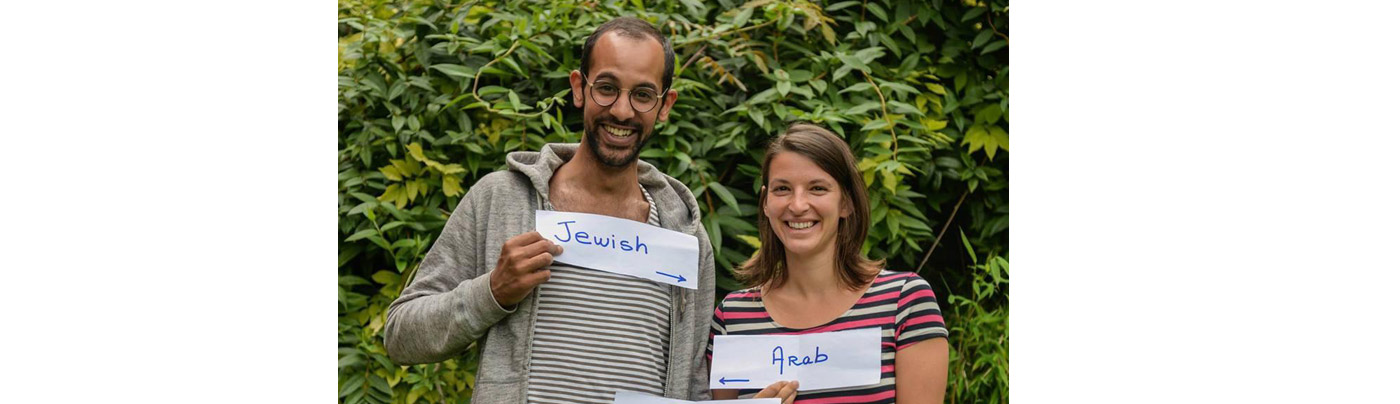 Jewish
→
Arab
←